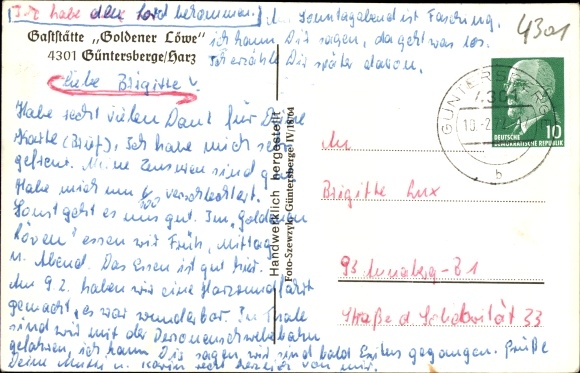 Ich habe den Lord bekommen.
Sonntagabend ist Fasching,
ich kann Dir sagen, da geht was los.
Ich erzähle Dir später davon.
4301
Gaststätte „Goldener Löwe"
4301 Güntersberge/Harz
Liebe Brigitte!
Habe recht vielen Dank für Deine
Karte (Brief), Ich habe mich sehr
gefreut. Meine Zensuren sind
Habe mich um verschlechtert.
Sonst geht es uns gut. Im „Goldenen
Löwen" essen wir Früh, Mittag
u. Abend. Das Essen ist gut hier.
Am 9.2. haben wir eine Harzrundfahrt
gemacht, es war wunderbar. In Thale
sind wir mit der Personenschwebebahn
gefahren, ich kann Dir sagen wir sind bald Ersten gegangen. Grüße
Deine Mutti u. Karin recht herzlich von mir.
Handwerklich hergestellt
Foto-Szewzyk, Güntersberge IV/18/64
GÜNTERSBERGE
4301
10.-2.72
b
10
DEUTSCHE
DEMOKRATISCHE REPUBLIK
An
Brigitte Lux
93 Annaberg-B1
Straße d Solidarität 33